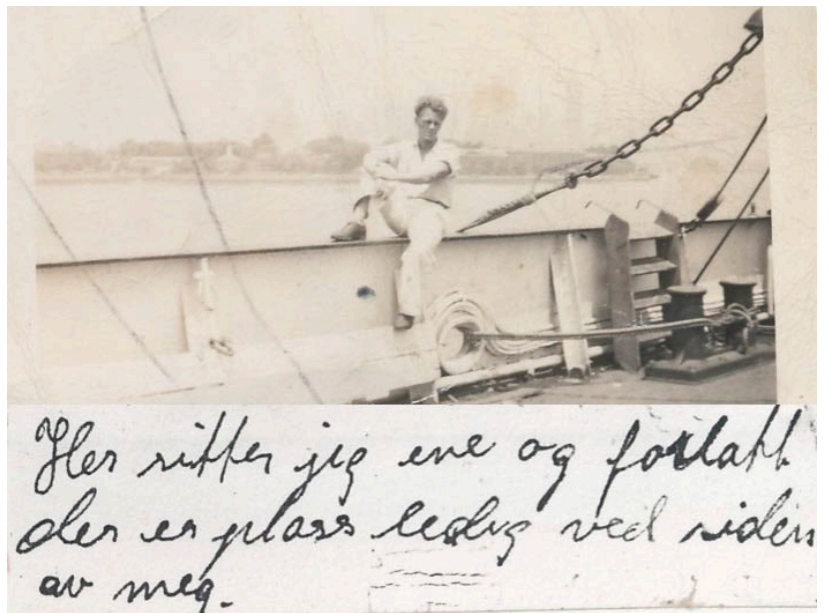 Her sitter jeg ene og forlatt
der er plass ledig ved siden
av meg.